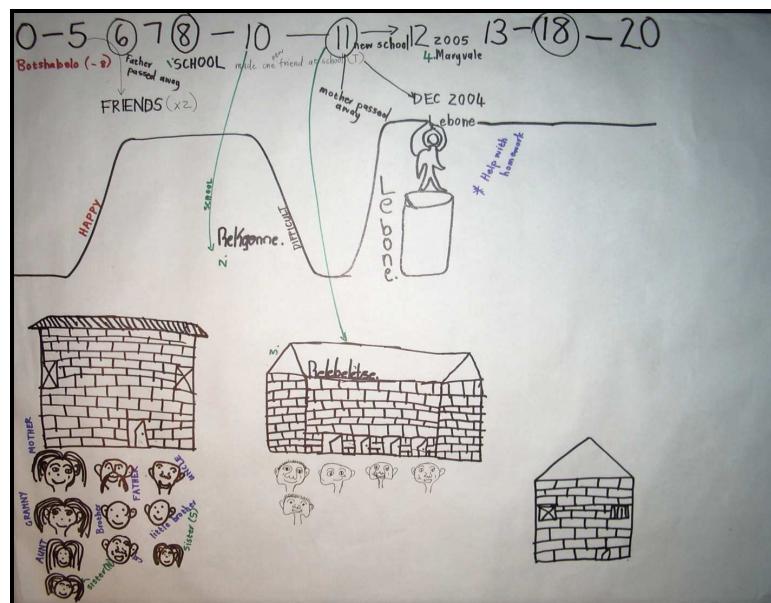 0-5 6 7 8 - 10 — 11 new school 12 2005 13-18-20
Botshabelo (-8) Father passed away 'SCHOOL made one new friend at school (T) 4. Maryvale
FRIENDS (x2)
mother passed away
DEC 2004
Lebone
* Help with homework
HAPPY
SCHOOL
2.
DIFFICULT
Lebone.
3.
MOTHER
FATHER
UNCLE
GRANNY
Brother
little brother
AUNT
sister (S)